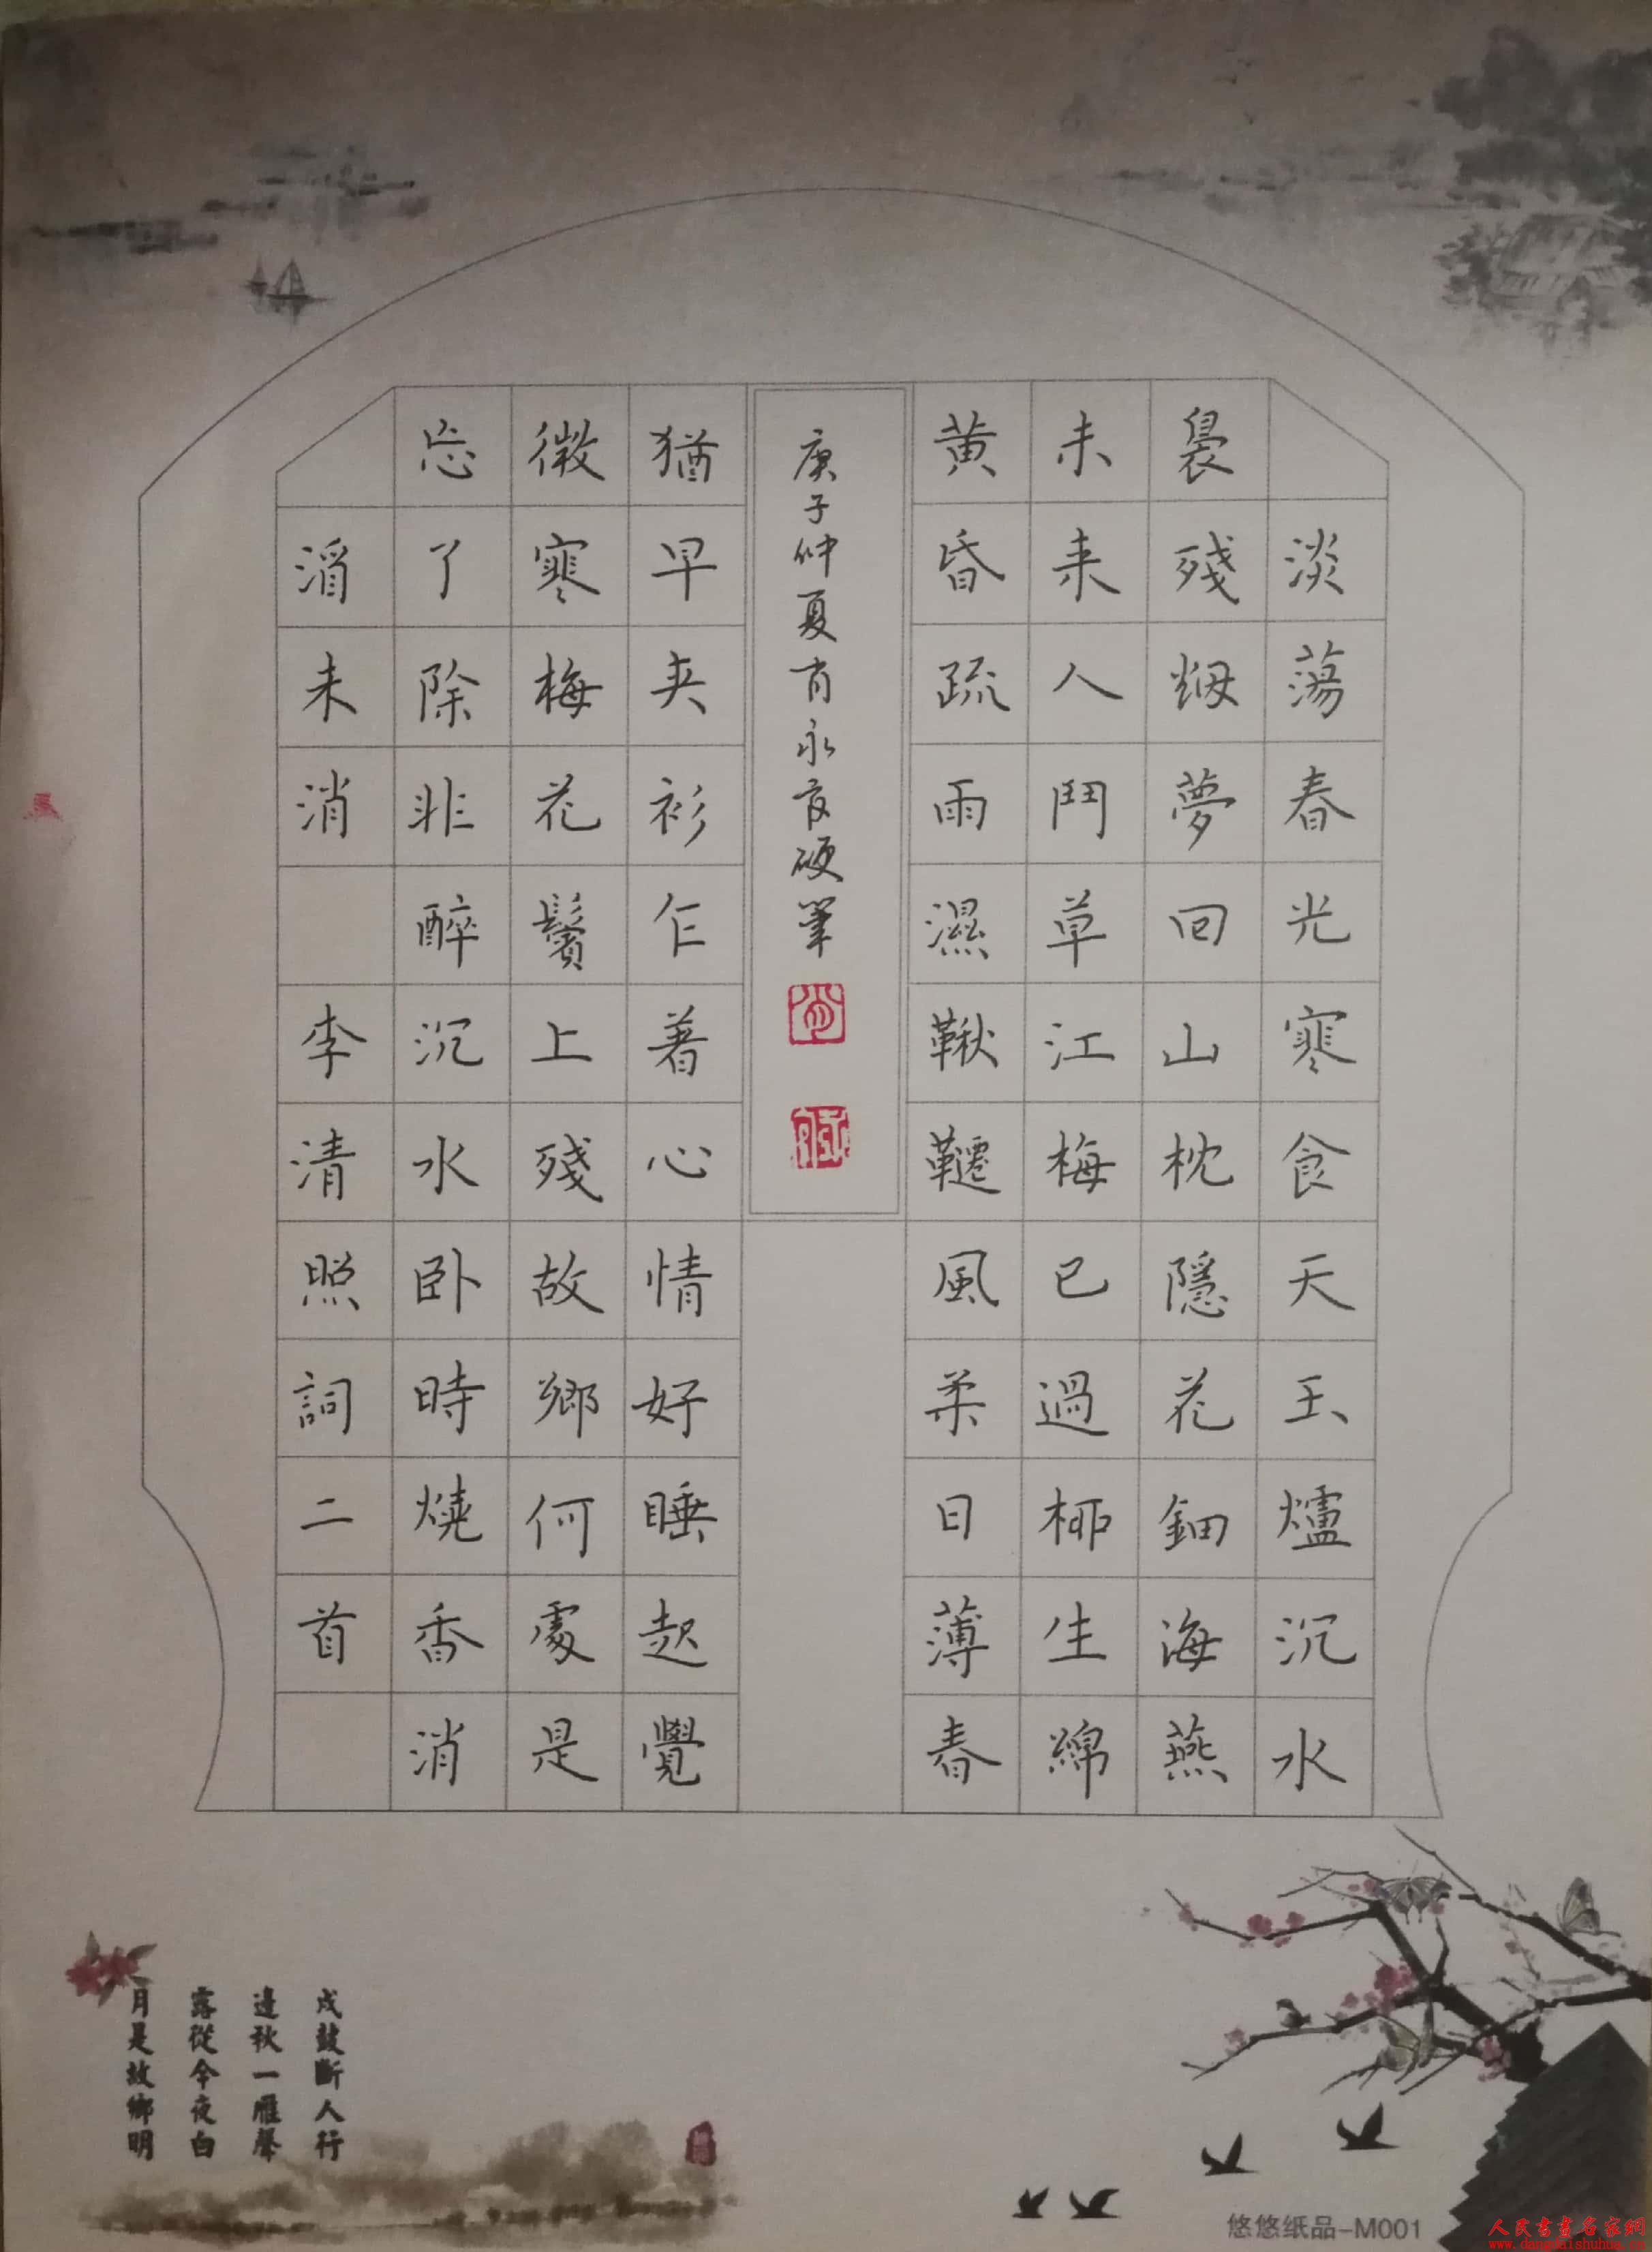 淡蕩春光寒食天玉爐沉水
裊殘烟夢回山枕隱花鈿海燕
未来人鬥草江梅已過柳生綿
黄昏疏雨濕鞦韆風柔日薄春
庚子仲夏肖永硬筆
猶早夾衫乍著心情好睡起覺
微寒梅花鬢上殘故鄉何處是
忘了除非醉沉水卧時燒香消
酒未消 李清照詞二首
戍鼓斷人行
邊秋一雁聲
露從今夜白
月是故鄉明
悠悠纸品-M001
人民書畫名家網
www.dangdaishuhua.cn